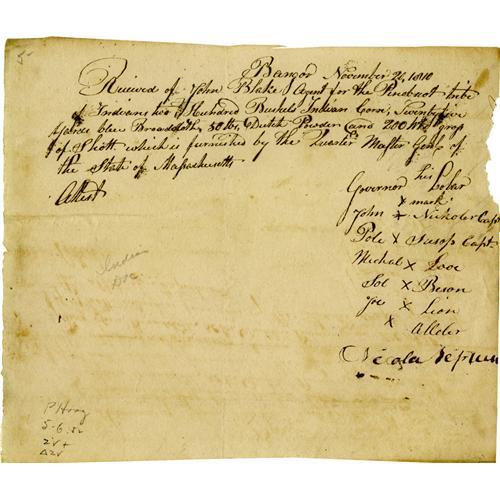 5
Bangor November 24, 1810
Received of John Blake Agent for the Penobscot tribe
of Indians two Hundred Bushels Indian Corn, Twenty five
Yards blue Broadcloth, 50 lbs, Dutch Powder and 200
of Shott which is furnished by the Quarter Master Genl of
the State of Massachusetts
Attest
Governor his Lolar
x mark
John x Nicholes Capt
Pole x Susop Capt
Michal x
Sol x Beson
Joe x Lion
x Allder
Nicola Neptune
Indian
Doc
P Hoag
5-6.82
2v+